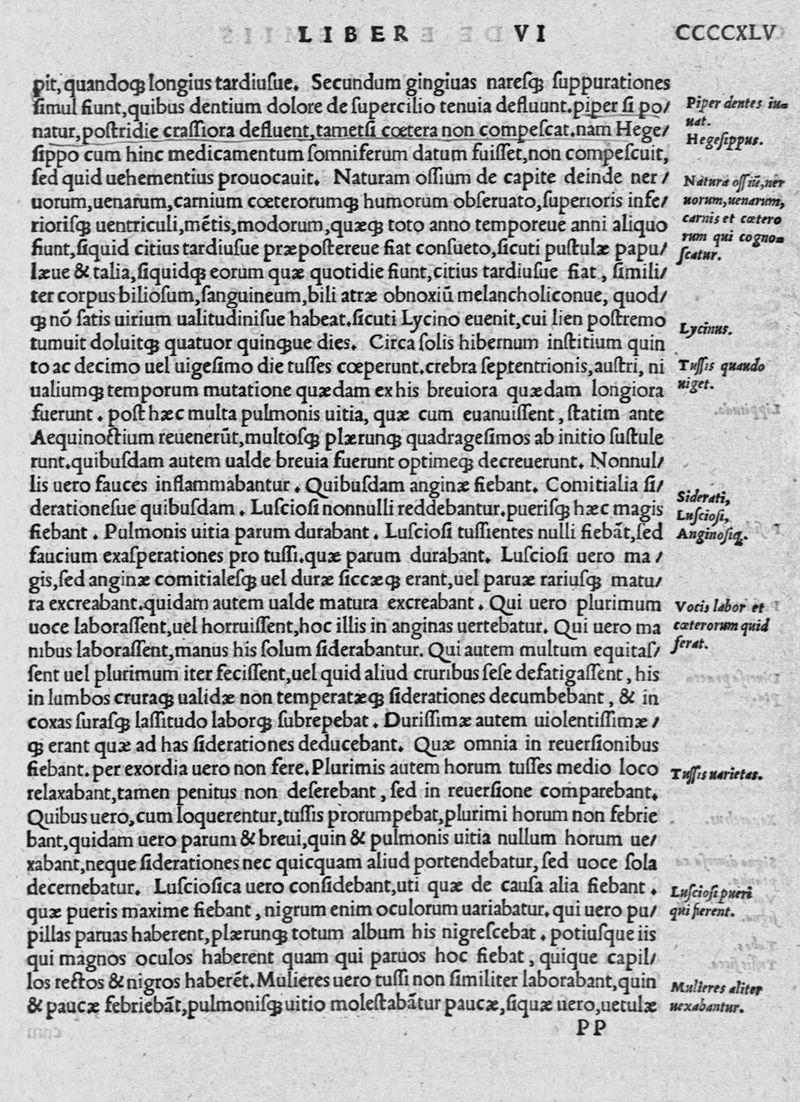 LIBER VI CCCCXLV
pit, quandoqꝫ longius tardiusue. Secundum gingiuas naresqꝫ suppurationes
simul fiunt, quibus dentium dolore de supercilio tenuia defluunt. piper si po/
natur, postridie crassiora defluent, tametsi cœtera non compescat. nam Hege/
sippo cum hinc medicamentum somniferum datum fuisset, non compescuit,
sed quid uehementius prouocauit. Naturam ossium de capite deinde ner/
uorum, uenarum, carnium cœterorumqꝫ humorum obseruato, superioris infe/
riorisqꝫ uentriculi, mētis, modorum, quæqꝫ toto anno temporeue anni aliquo
fiunt, siquid citius tardiusue præpostereue fiat consueto, sicuti pustulæ papu/
læue & talia, siquidqꝫ eorum quæ quotidie fiunt, citius tardiusue fiat, simili/
ter corpus biliosum, sanguineum, bili atræ obnoxiū melancholiconue, quod/
qꝫ nō satis uirium ualitudinisue habeat. sicuti Lycino euenit, cui lien postremo
tumuit doluitqꝫ quatuor quinqꝫue dies. Circa solis hibernum institium quin
to ac decimo uel uigesimo die tusses cœperunt. crebra septentrionis, austri, ni
ualiumqꝫ temporum mutatione quædam ex his breuiora quædam longiora
fuerunt. post hæc multa pulmonis uitia, quæ cum euanuissent, statim ante
Aequinoctium reuenerūt, multosqꝫ plærunqꝫ quadragesimos ab initio sustule
runt. quibusdam autem ualde breuia fuerunt optimeqꝫ decreuerunt. Nonnul/
lis uero fauces inflammabantur. Quibusdam anginæ fiebant. Comitialia si/
derationesue quibusdam. Lusciosi nonnulli reddebantur. puerisqꝫ hæc magis
fiebant. Pulmonis uitia parum durabant. Lusciosi tussientes nulli fiebāt, sed
faucium exasperationes pro tussi. quæ parum durabant. Lusciosi uero ma/
gis, sed anginæ comitialesqꝫ uel duræ siccæqꝫ erant, uel paruæ rariusqꝫ matu/
ra excreabant. quidam autem ualde matura excreabant. Qui uero plurimum
uoce laborassent, uel horruissent, hoc illis in anginas uertebatur. Qui uero ma
nibus laborassent, manus his solum siderabantur. Qui autem multum equitas/
sent uel plurimum iter fecissent, uel quid aliud cruribus sese defatigassent, his
in lumbos cruraqꝫ ualidæ non temperatæqꝫ siderationes decumbebant, & in
coxas surasqꝫ lassitudo laborqꝫ subrepebat. Durissimæ autem uiolentissimæ/
qꝫ erant quæ ad has siderationes deducebant. Quæ omnia in reuersionibus
fiebant. per exordia uero non fere. Plurimis autem horum tusses medio loco
relaxabant, tamen penitus non deserebant, sed in reuersione comparebant.
Quibus uero, cum loquerentur, tussis prorumpebat, plurimi horum non febrie
bant, quidam uero parum & breui, quin & pulmonis uitia nullum horum ue/
xabant, neque siderationes nec quicquam aliud portendebatur, sed uoce sola
decernebatur. Lusciosica uero considebant, uti quæ de causa alia fiebant.
quæ pueris maxime fiebant, nigrum enim oculorum uariabatur. qui uero pu/
pillas paruas haberent, plærunqꝫ totum album his nigrescebat. potiusque iis
qui magnos oculos haberent quam qui paruos hoc fiebat, quique capil/
los rectos & nigros haberēt. Mulieres uero tussi non similiter laborabant, quin
& paucæ febriebāt, pulmonisqꝫ uitio molestabātur paucæ, siquæ uero, uetulæ
PP
Piper dentes iu=
uat.
Hegesippus.
Natura ossiū, ner
uorum, uenarum,
carnis et cœtero
rum qui cogno=
scatur.
Lycinus.
Tussis quando
uiget.
Siderati,
Lusciosi,
Anginosiq.
Vocis labor et
cœterorum quid
ferat.
Tussis uarietas.
Lusciosi pueri
qui fierent.
Mulieres aliter
uexabantur.